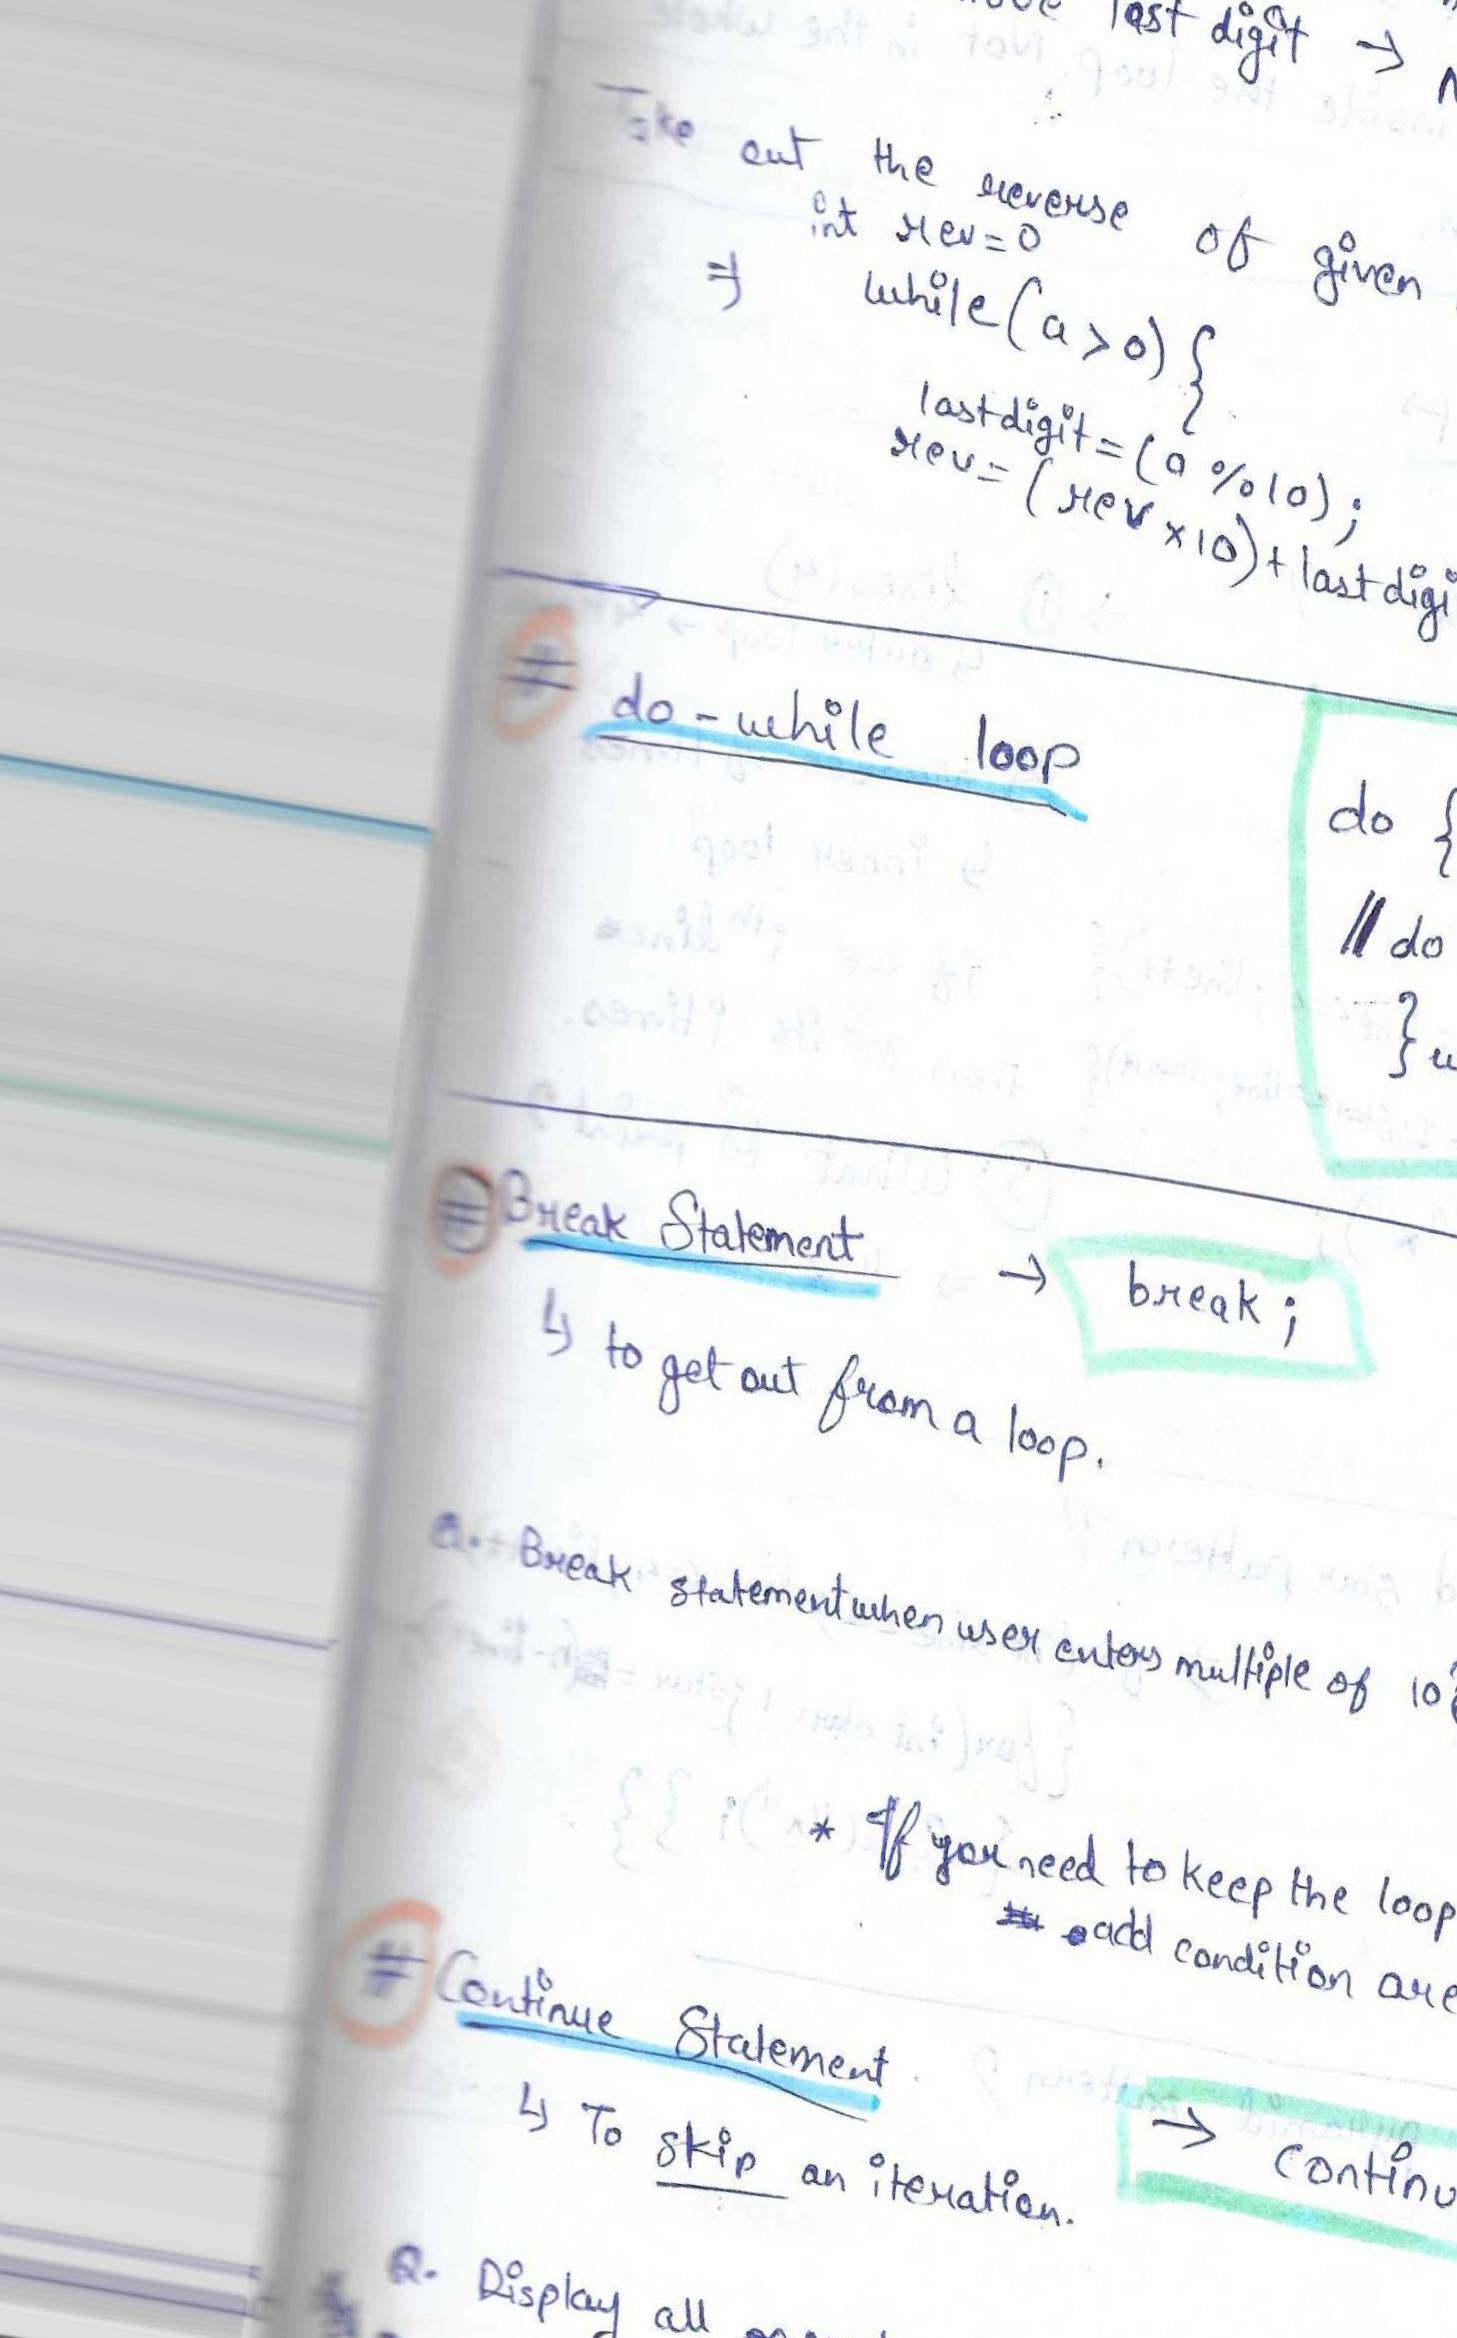 last digit →
Take out the reverse of given
int rev=0
⇒ while(a>0){
lastdigit=(a%10);
rev=(rev×10)+lastdigi
# do-while loop
do {
// do
}
# Break Statement → break;
↳ to get out from a loop.
Q. Break statement when user enters multiple of 10
* If you need to keep the loop
add condition are
# Continue Statement → continu
↳ To skip an iteration.
Q. Display all